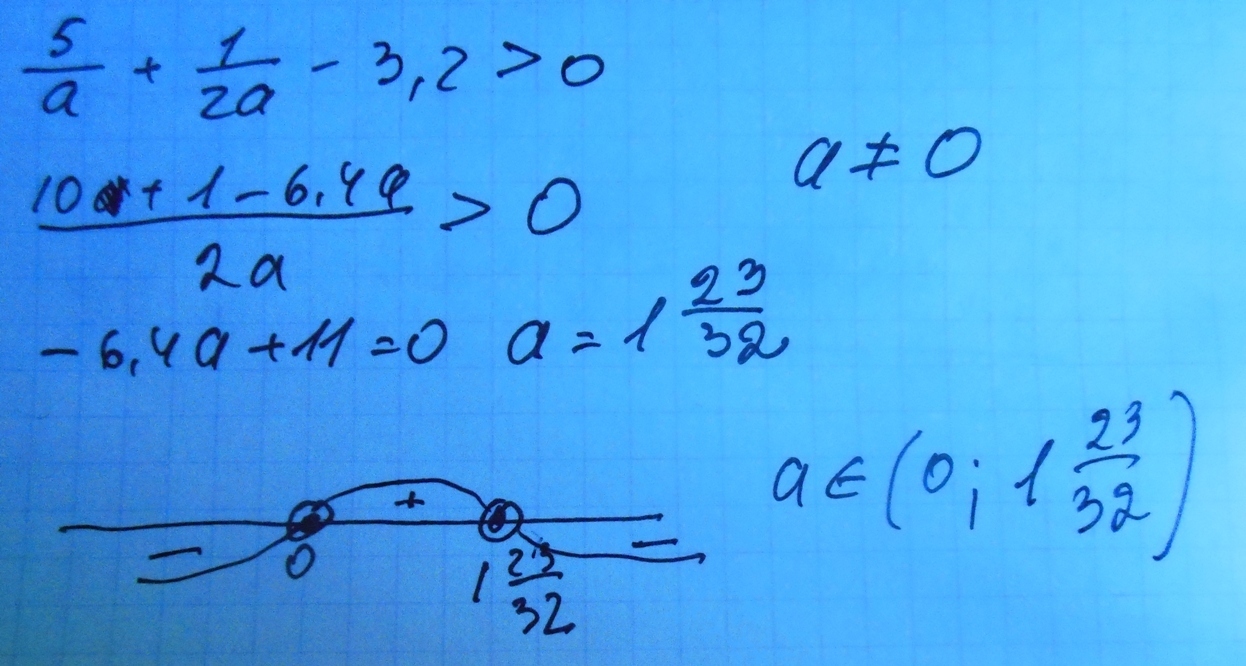 5/a + 1/2a - 3,2 > 0
(10 + 1 - 6,4a)/2a > 0
a ≠ 0
-6,4a + 11 = 0 a = 1 23/32
- 0 + 1 23/32 -
a ∈ (0; 1 23/32)